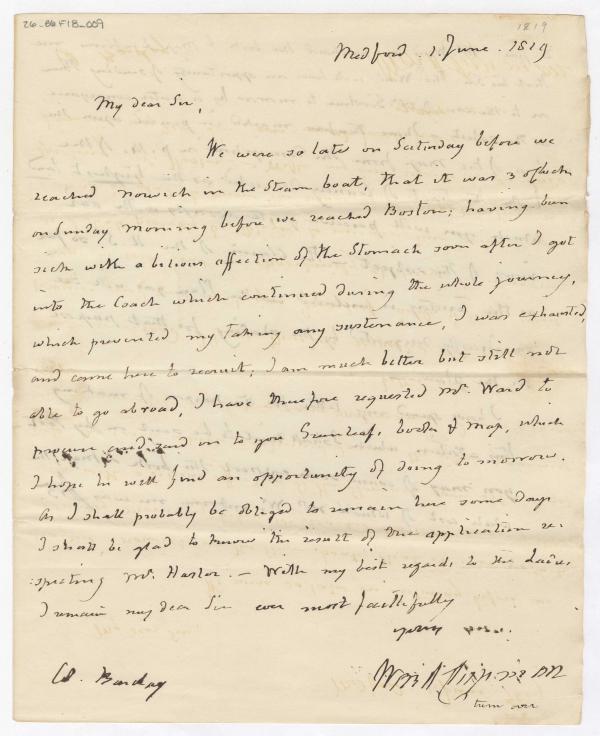 26-86F18-009
1819
Medford. 1. June. 1819
My dear Sir,
We were so late on Saturday before we
reached Norwich in the Steam boat, that it was 3 oClock
on Sunday morning before we reached Boston; having been
sick with a bilious affection of the Stomach soon after I got
into the Coach which continued during the whole journey,
which prevented my taking any sustenance, I was exhausted,
and came here to recruit; I am much better but still not
able to go abroad, I have therefore requested Mr. Ward to
procure and send on to you Greenleafs books & map, which
I hope he will find an opportunity of doing to morrow.
As I shall probably be obliged to remain here some days
I shall be glad to know the result of the application re-
:specting Mr. Hasler. — With my best regards to the Ladies,
I remain my dear Sir ever most faithfully
yours
Col. Barclay
turn over